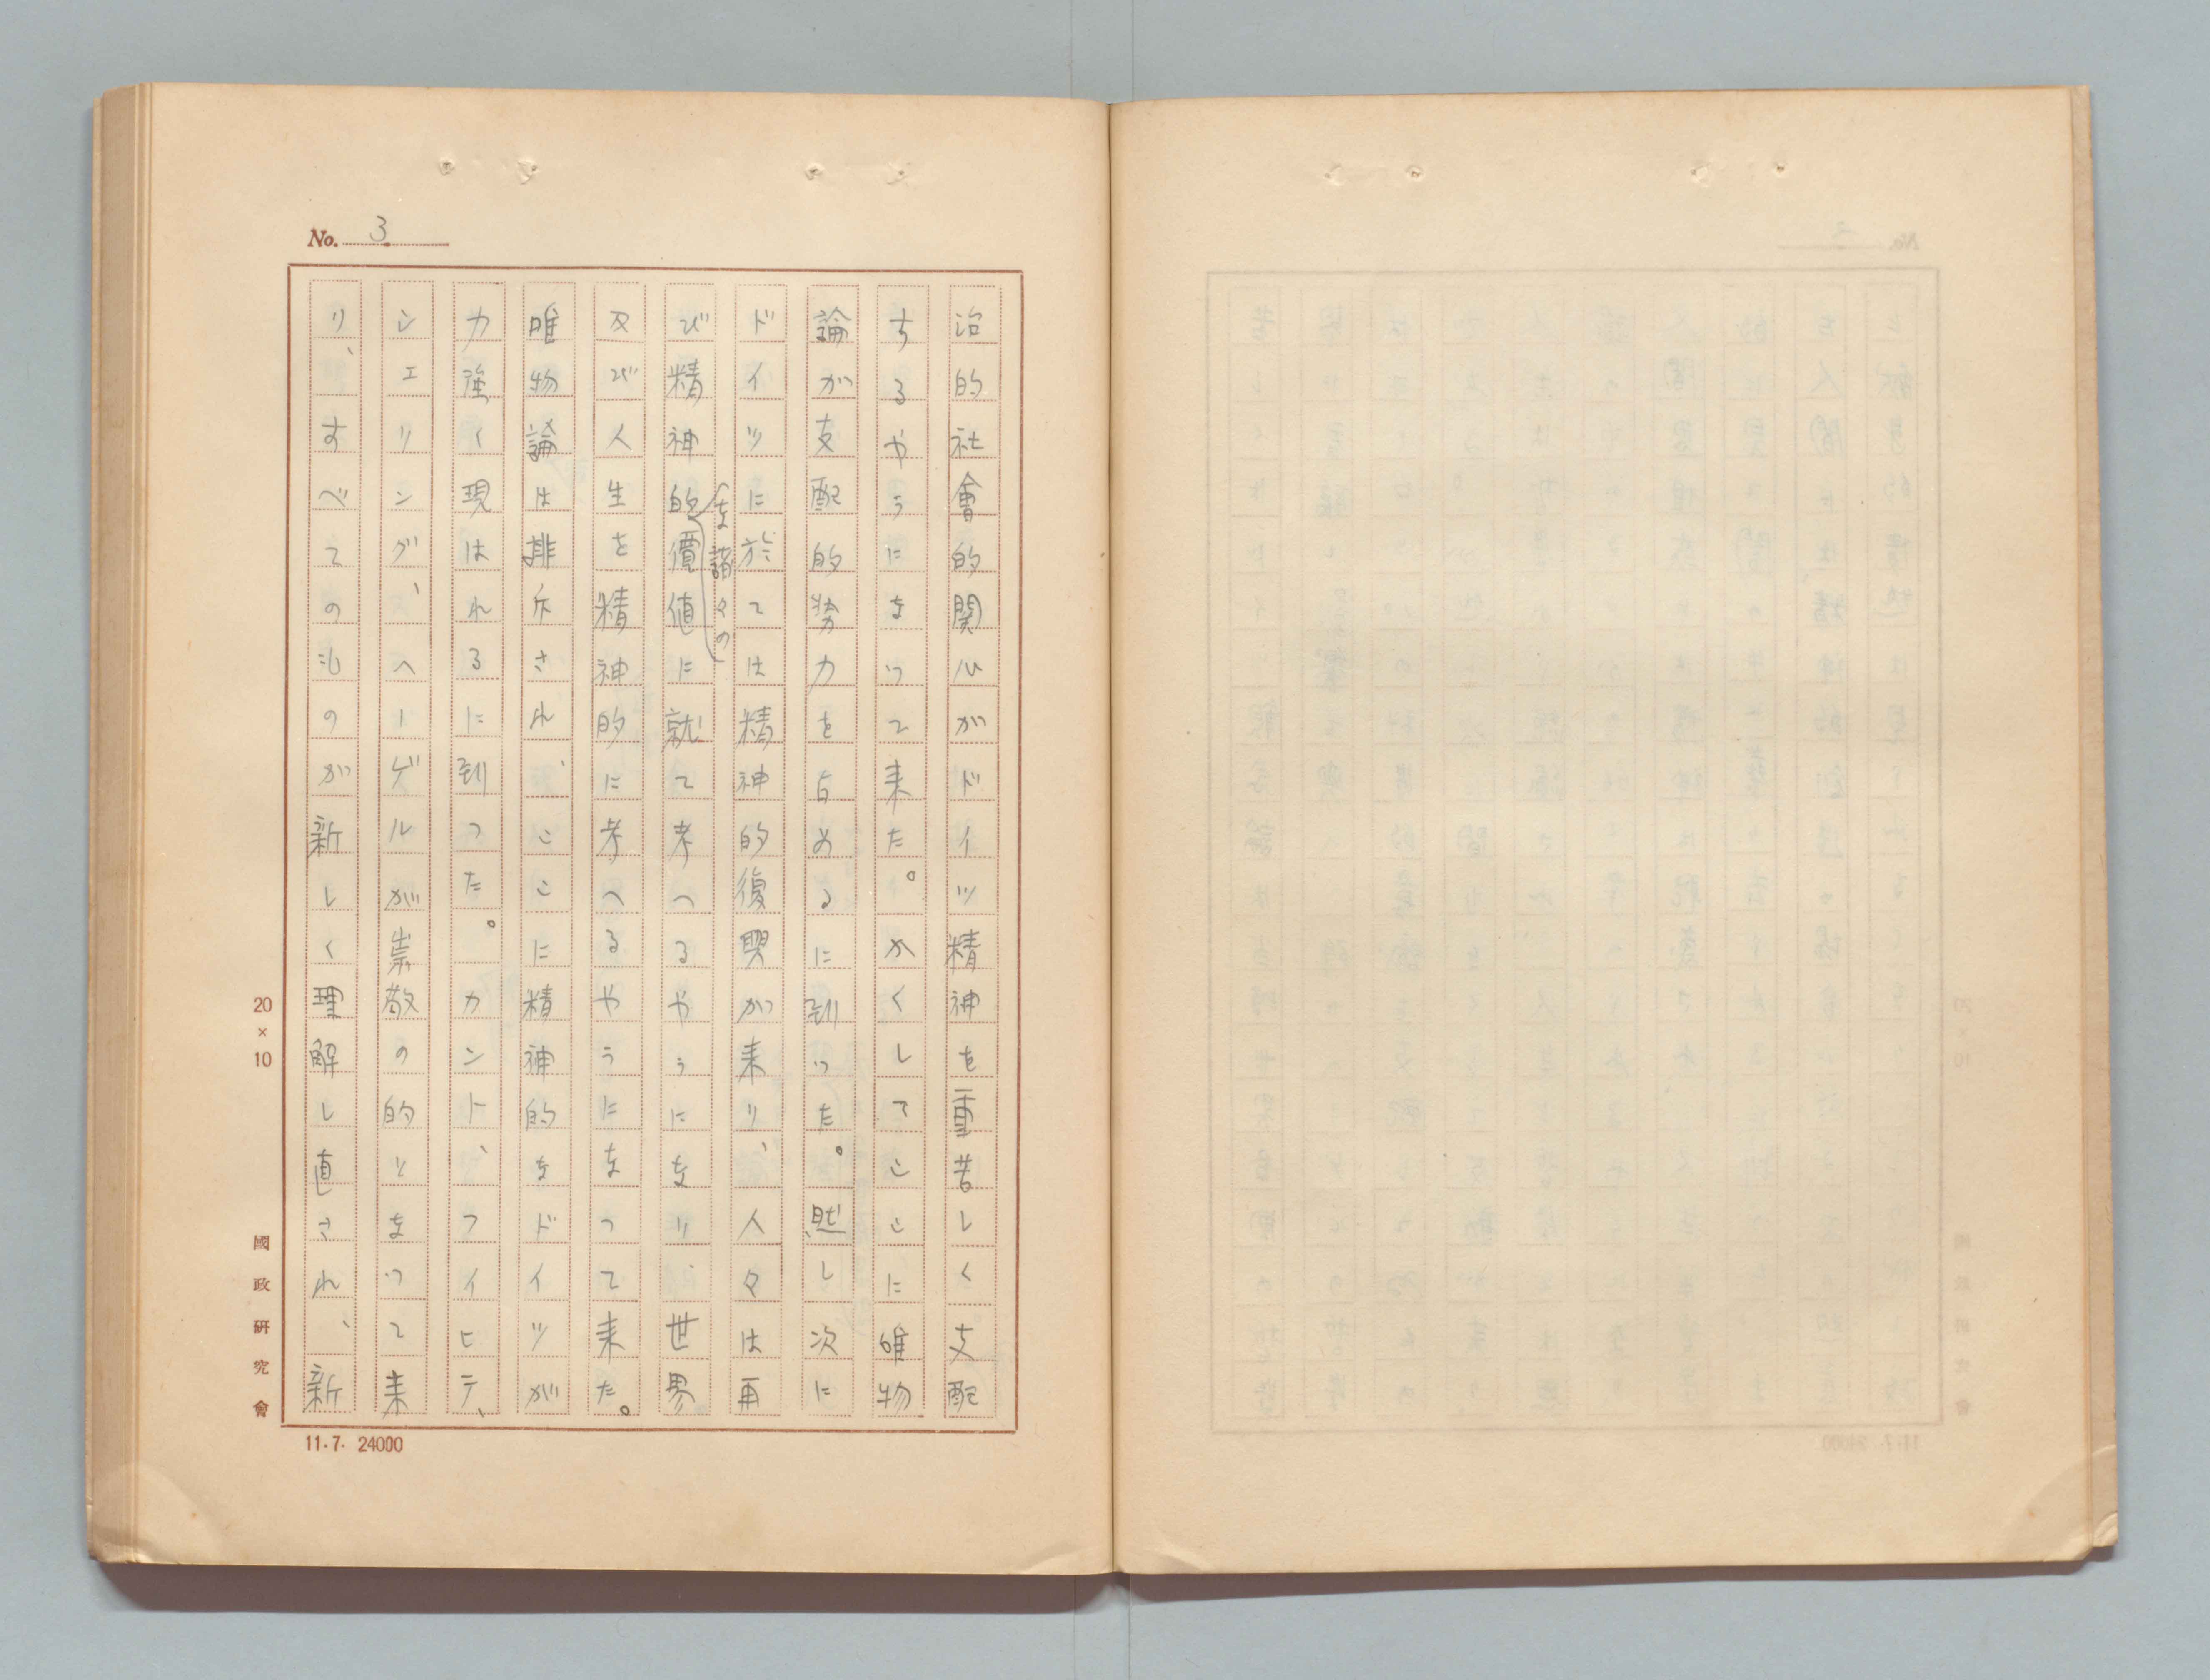 No. 3
治的社會的関心がドイツ精神を重苦しく支配
するやうになつて来た。かくしてここに唯物
論が支配的勢力を占めるに到つた。然し次に
ドイツに於ては精神的復興が来り、人々は再
び精神的な諸々の價値に就て考へるやうになり、世界
及び人生を精神的に考へるやうになつて来た。
唯物論は排斥され、ここに精神的なドイツが
力強く現はれるに到つた。カント、フイヒテ、
シエリング、ヘーゲルが崇敬の的となつて来
り、すべてのものが新しく理解し直され、新
20×10
國政研究會
11.7. 24000